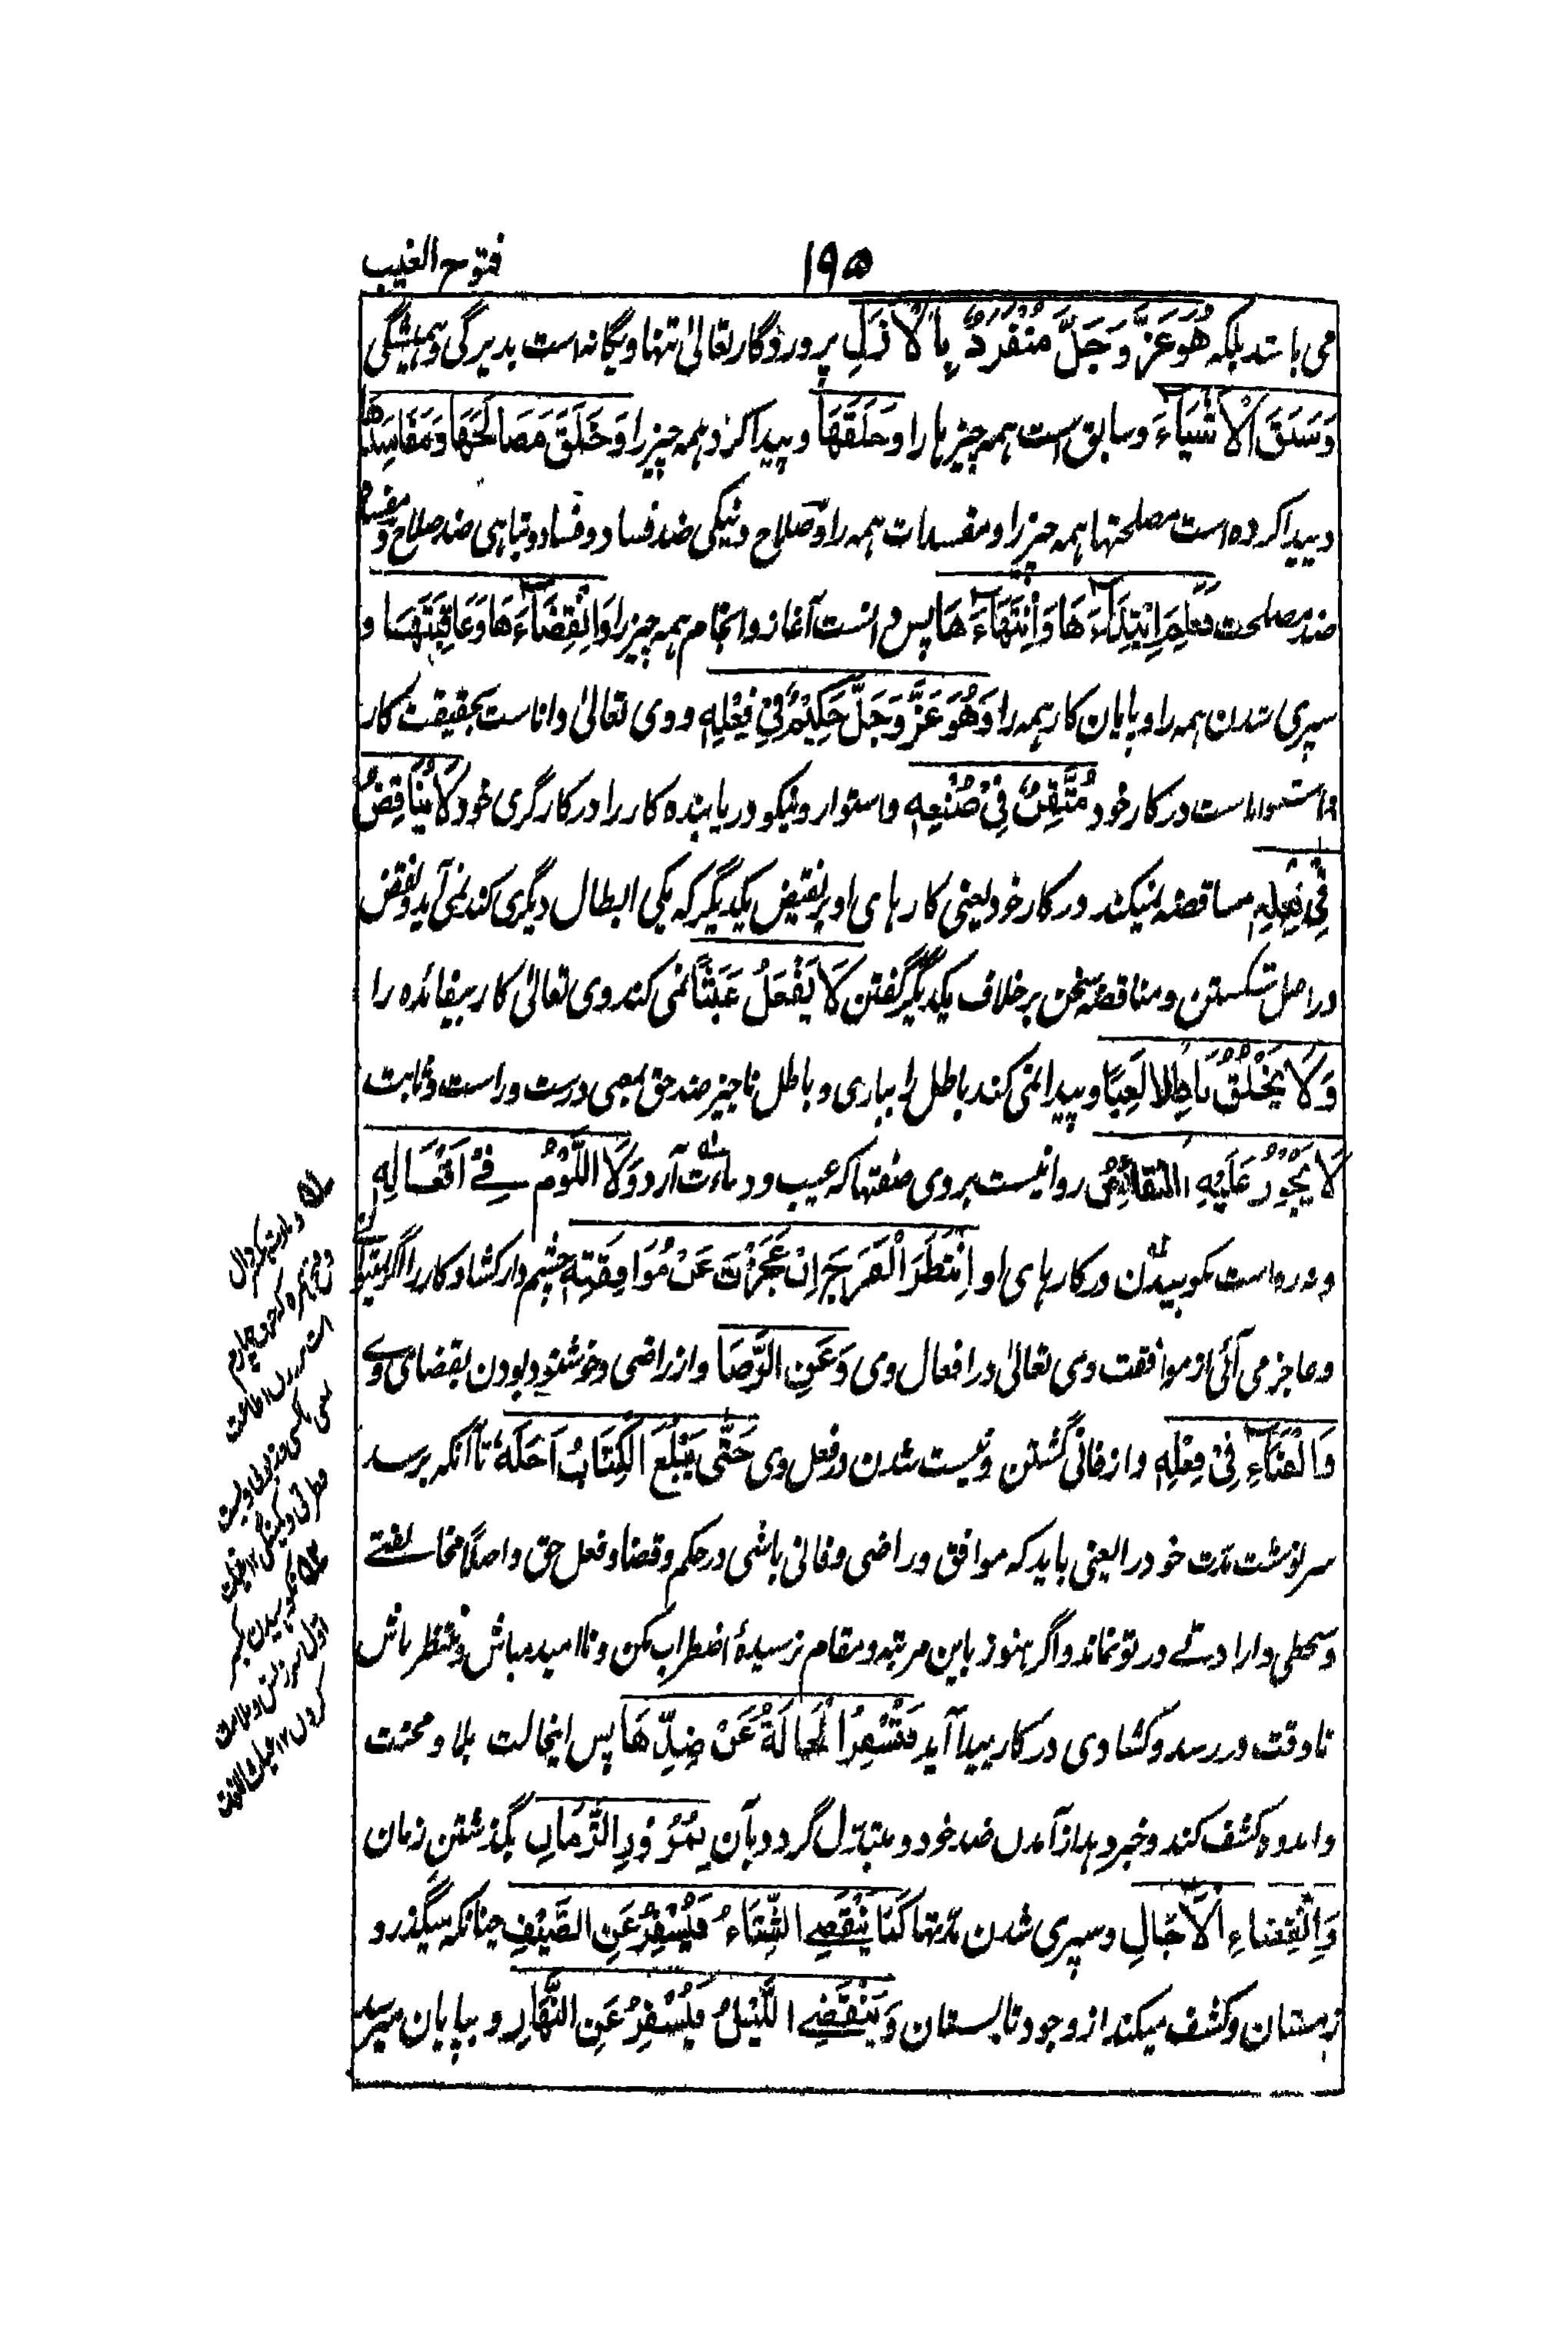 ۱۹۵ فتوح الغیب
می باشد بلکه هُوَ عَزَّ وَجَلَّ مُنْفَرِدٌ بِالْاَزَلِ پروردگار تعالیٰ تنها و یگانه است بدیرگی و همیشگی
وَسَبَقَ الْاَشْیَآءَ و سابق است همه چیزها را وَخَلَقَهَا و پیدا کرد همه چیز را وَخَلَقَ مَصَالِحَهَا وَمَفَاسِدَهَا
و پیدا کرده است مصلحتها همه چیز را و مفسدات همه را و صلاح و نیکی ضد فساد و فساد و تباهی ضد صلاح و مفسده
ضد مصلحت فَعَلِمَ اِبْتِدَآءَهَا وَاِنْتِهَآءَهَا پس دانست آغاز و انجام همه چیز را وَانْقِضَآءَهَا وَعَاقِبَتَهَا و
سپری شدن همه را و پایان کار همه را وَهُوَ عَزَّ وَجَلَّ حَکِیْمٌ فِیْ فِعْلِهٖ و وی تعالیٰ دانا ست بحقیقت کار
و است در کار خود مُتْقِنٌ فِیْ صُنْعِهٖ و استوار و نیکو دریابنده کار را در کارگری خود لَا یُنَاقِضُ
فِیْ فِعْلِهٖ مناقضه نمیکند در کار خود یعنی کارهای او بر نقیض یکدیگر که یکی ابطال دیگری کند نمی آید و نقض
در اصل شکستن و مناقضه سخن بر خلاف یکدیگر گفتن لَا یَفْعَلُ عَبَثًا نمی کند وی تعالیٰ کار بیفائده را
وَلَا یَخْلُقُ بَاطِلًا لَعِبًا و پیدا نمی کند باطل را ببازی و باطل ناچیز ضد حق بمعنی درست و راست و ثابت
لَا یَجُوْزُ عَلَیْهِ النَّقَائِصُ روا نیست بر وی صفتها که عیب و دناءت آرد وَلَا اللَّوْمُ فِیْ اَفْعَالِهٖ
و نه رواست نکوهیدن در کارهای او اِنْتَظِرِ الْفَرَجَ اِنْ عَجَزْتَ عَنْ مُوَافِقَتِهٖ چشم دار کشاد کار را اگر
و عاجز می آئی از موافقت وی تعالیٰ در افعال وی وَعَنِ الرِّضَا و از راضی و خوشنود بودن بقضای وے
وَالْفَنَآءِ فِیْ فِعْلِهٖ و از فانی گشتن و نیست شدن در فعل وی حَتّٰی یَبْلُغَ الْکِتَابُ اَجَلَهٗ تا آنکه برسد
سرنوشت مدت خود را یعنی باید که موافق و راضی و فانی باشی در حکم و قضا و فعل حق و اصلاً مخالفتے
و سخطی و ارادتے در تو نماند و اگر هنوز باین مرتبه و مقام نرسیدهٔ اضطراب مکن و ناامید مباش و منتظر باش
تا وقت در رسد و کشادی در کار پیدا آید فَتُسْفِرُ الْحَالَةُ عَنْ ضِدِّهَا پس اینحالت بلا و محنت
و اندوه کشف کند و خبر دهد از آمدن ضد خود و متبدل گردد بآن بِمُرُوْرِ الزَّمَانِ بگذشتن زمان
وَانْقِضَاءِ الْآجَالِ و سپری شدن مدتها کَمَا یَنْقَضِے الشِّتَاءُ فَیُسْفِرُ عَنِ الصَّیْفِ چنانکه میگذرد
زمستان و کشف میکند از وجود تابستان وَیَنْقَضِے اللَّیْلُ فَیُسْفِرُ عَنِ النَّهَارِ و بپایان میرسد